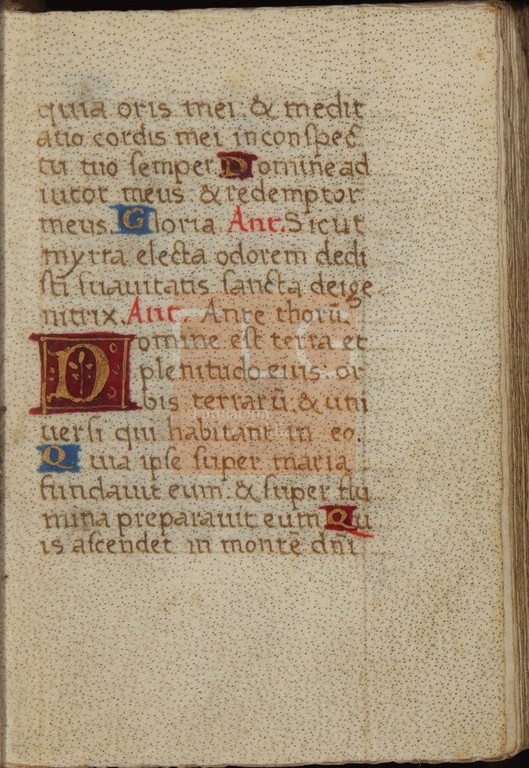 quia oris mei: & medit
atio cordis mei inconspec
tu tuo semper. Domine ad
iutor meus & redemptor
meus. Gloria Ant. Sicut
myrra electa odorem dedi
sti suauitatis sancta deige
nitrix. Ant. Ante thorū.
Domine est terra et
plenitudo eius: or
bis terrarū. & uni
uersi qui habitant in eo.
Quia ipse super maria
fundauit eum: & super flu
mina preparauit eum. Qu
is ascendet in monte dni